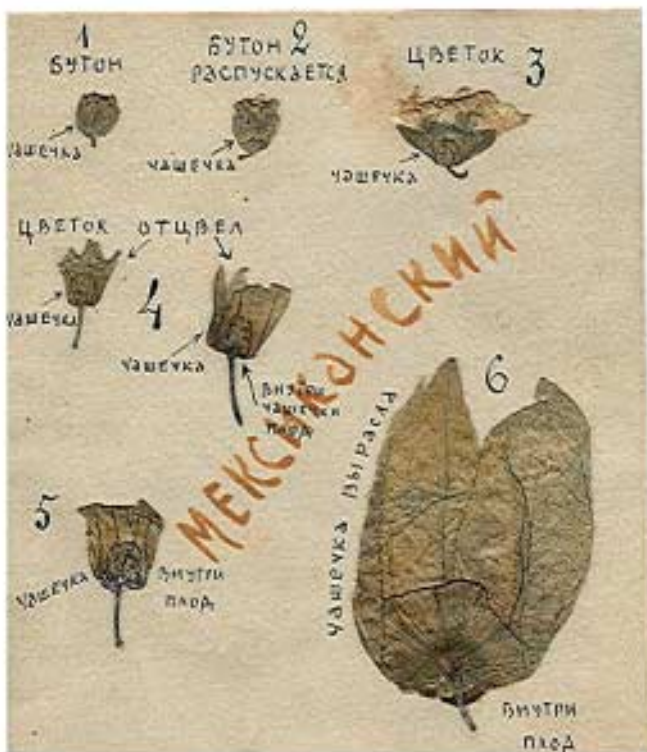 1
БУТОН
чашечка
БУТОН 2
РАСПУСКАЕТСЯ
чашечка
ЦВЕТОК 3
чашечка
ЦВЕТОК ОТЦВЕЛ
чашечка
4
чашечка
ВНУТРИ
чашечки
плод
МЕКСИКАНСКИЙ
5
чашечка
ВНУТРИ
плод
6
чашечка выросла
ВНУТРИ
плод